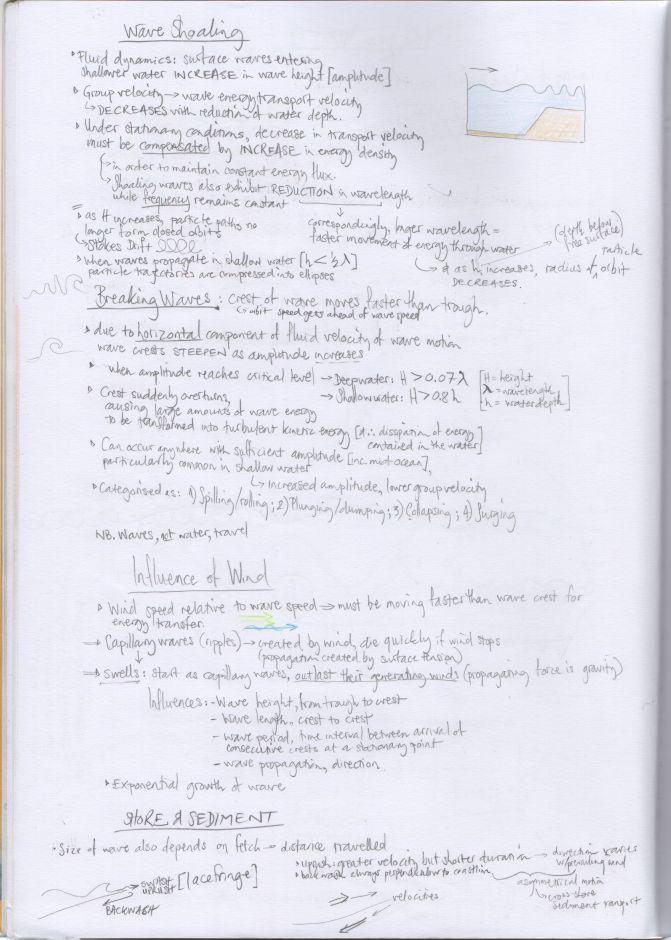 Wave Shoaling
Fluid dynamics: surface waves entering
shallower water INCREASE in wave height [amplitude]
Group velocity → wave energy transport velocity
↳ DECREASES with reduction of water depth.
Under stationary conditions, decrease in transport velocity
must be compensated by INCREASE in energy density
↳ in order to maintain constant energy flux.
↳ Shoaling waves also exhibit REDUCTION in wavelength
while frequency remains constant
= as H increases, particle paths no
longer form closed orbits
↳ Stokes Drift
correspondingly, longer wavelength =
faster movement of energy through water
(depth below
free surface)
↳ & as h increases, radius of particle orbit
DECREASES.
when waves propagate in shallow water [h < ½ λ]
particle trajectories are compressed into ellipses
Breaking Waves: crest of wave moves faster than trough.
↳ orbit speed gets ahead of wave speed
due to horizontal component of fluid velocity of wave motion
wave crests STEEPEN as amplitude increases
when amplitude reaches critical level → Deepwater: H > 0.07λ
→ Shallow water: H > 0.8h
[H = height
λ = wavelength
h = water depth]
Crest suddenly overturns,
causing large amounts of wave energy
to be transformed into turbulent kinetic energy [& ∴ dissipation of energy
contained in the water]
Can occur anywhere with sufficient amplitude [inc. mid ocean],
particularly common in shallow water
↳ increased amplitude, lower group velocity
Categorised as: 1) Spilling/rolling; 2) Plunging/dumping; 3) Collapsing; 4) Surging
NB. Waves, not water, travel
Influence of Wind
Wind speed relative to wave speed → must be moving faster than wave crest for
energy transfer.
→ Capillary waves (ripples) → created by wind, die quickly if wind stops
(propagation created by surface tension)
⇒ swells: start as capillary waves, outlast their generating winds (propagating force is gravity)
Influences: - Wave height, from trough to crest
- Wave length, crest to crest
- wave period, time interval between arrival of
consecutive crests at a stationary point
- wave propagation, direction
Exponential growth of wave
SHORE & SEDIMENT
Size of wave also depends on fetch → distance travelled
uprush: greater velocity but shorter duration → direction varies
w/prevailing wind
backwash always perpendicular to coastline
asymmetrical motion
↳ cross-shore
sediment transport
SWASH
UPRUSH [lace fringe]
BACKWASH
velocities